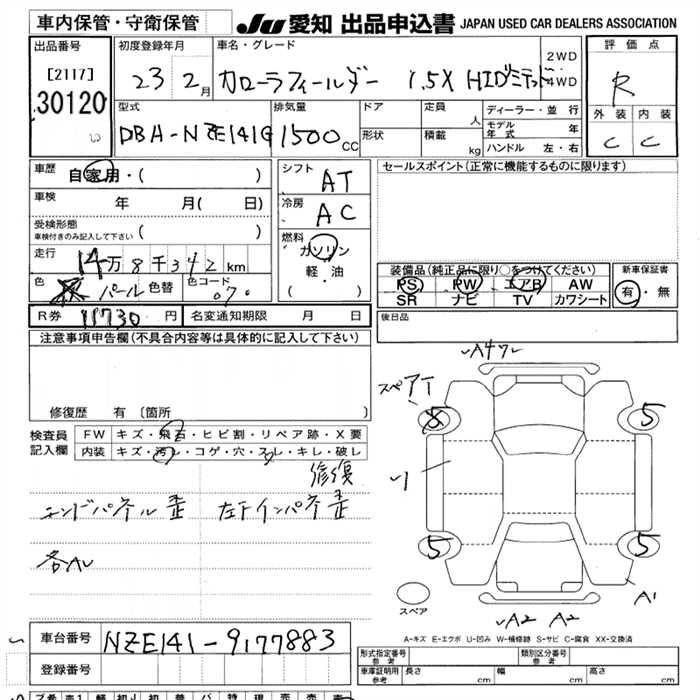 車内保管・守衛保管 JU 愛知 出品申込書 JAPAN USED CAR DEALERS ASSOCIATION
出品番号 初度登録年月 車名・グレード 評価点
[2117] 23 2月 カローラフィールダー 1.5X HID 2WD 4WD R
30120
型式 排気量 ドア 定員 人 ディーラー・並行 外装 内装
DBA-NZE141G 1500cc 形状 積載 kg モデル年式 年 C C
ハンドル 左・右
車歴 自家用・( ) シフト AT セールスポイント(正常に機能するものに限ります)
車検 年 月( 日) 冷房 AC
受検形態 ( )
車検付きのみ記入して下さい
燃料 ガソリン
軽・油
( )
走行 14万8千342km
色 パール 色替 色コード 070
装備品(純正品に限り○をつけてください) 新車保証書
PS PW エアB AW 有・無
SR ナビ TV カワシート
R券 11730円 名変通知期限 月 日 後日品
注意事項申告欄(不具合内容等は具体的に記入して下さい)
修復歴 有 〔箇所 〕
A4ワレ
スペアT
5 5
検査員 FW キズ・飛石・ヒビ割・リペア跡・X要
記入欄 内装 キズ・汚レ・コゲ・穴・スレ・キレ・破レ
修復
エンドパネル歪 左下インパネ歪
各AU
5 5
A1
スペア
A2 A2
A-キズ E-エクボ U-凹み W-補修跡 S-サビ C-腐食 XX-交換済
車台番号 NZE141-9177883
登録番号
形式指定番号 参考 類別区分番号 参考
車庫証明用 参考 長さ cm 幅 cm 高さ cm